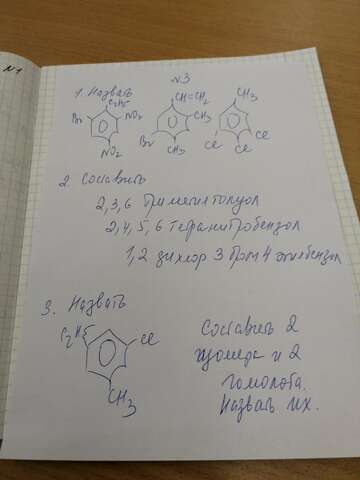 N1
N3
1. Назвать
C2H5
Br
NO2
NO2
CH=CH2
CH3
Br
CH3
CH3
Cl
Cl
Cl
2. Составить
2,3,6 триметилтолуол
2,4,5,6 тетранитробензол
1,2 дихлор 3 бром 4 этилбензол
3. Назвать
C2H5
Cl
CH3
Составить 2
изомера и 2
гомолога.
Назвать их.